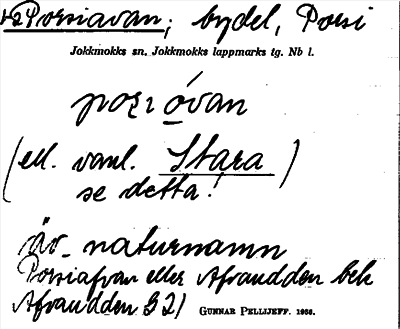 Porsiavan; bydel, Porsi
Jokkmokks sn. Jokkmokks lappmarks tg. Nb l.
(ell. vanl. Stara)
se detta!
äv. naturnamn
Porsiafvan eller Afvaudden bek
Afvaudden § 21
GUNNAR PELLIJEFF. 1958.